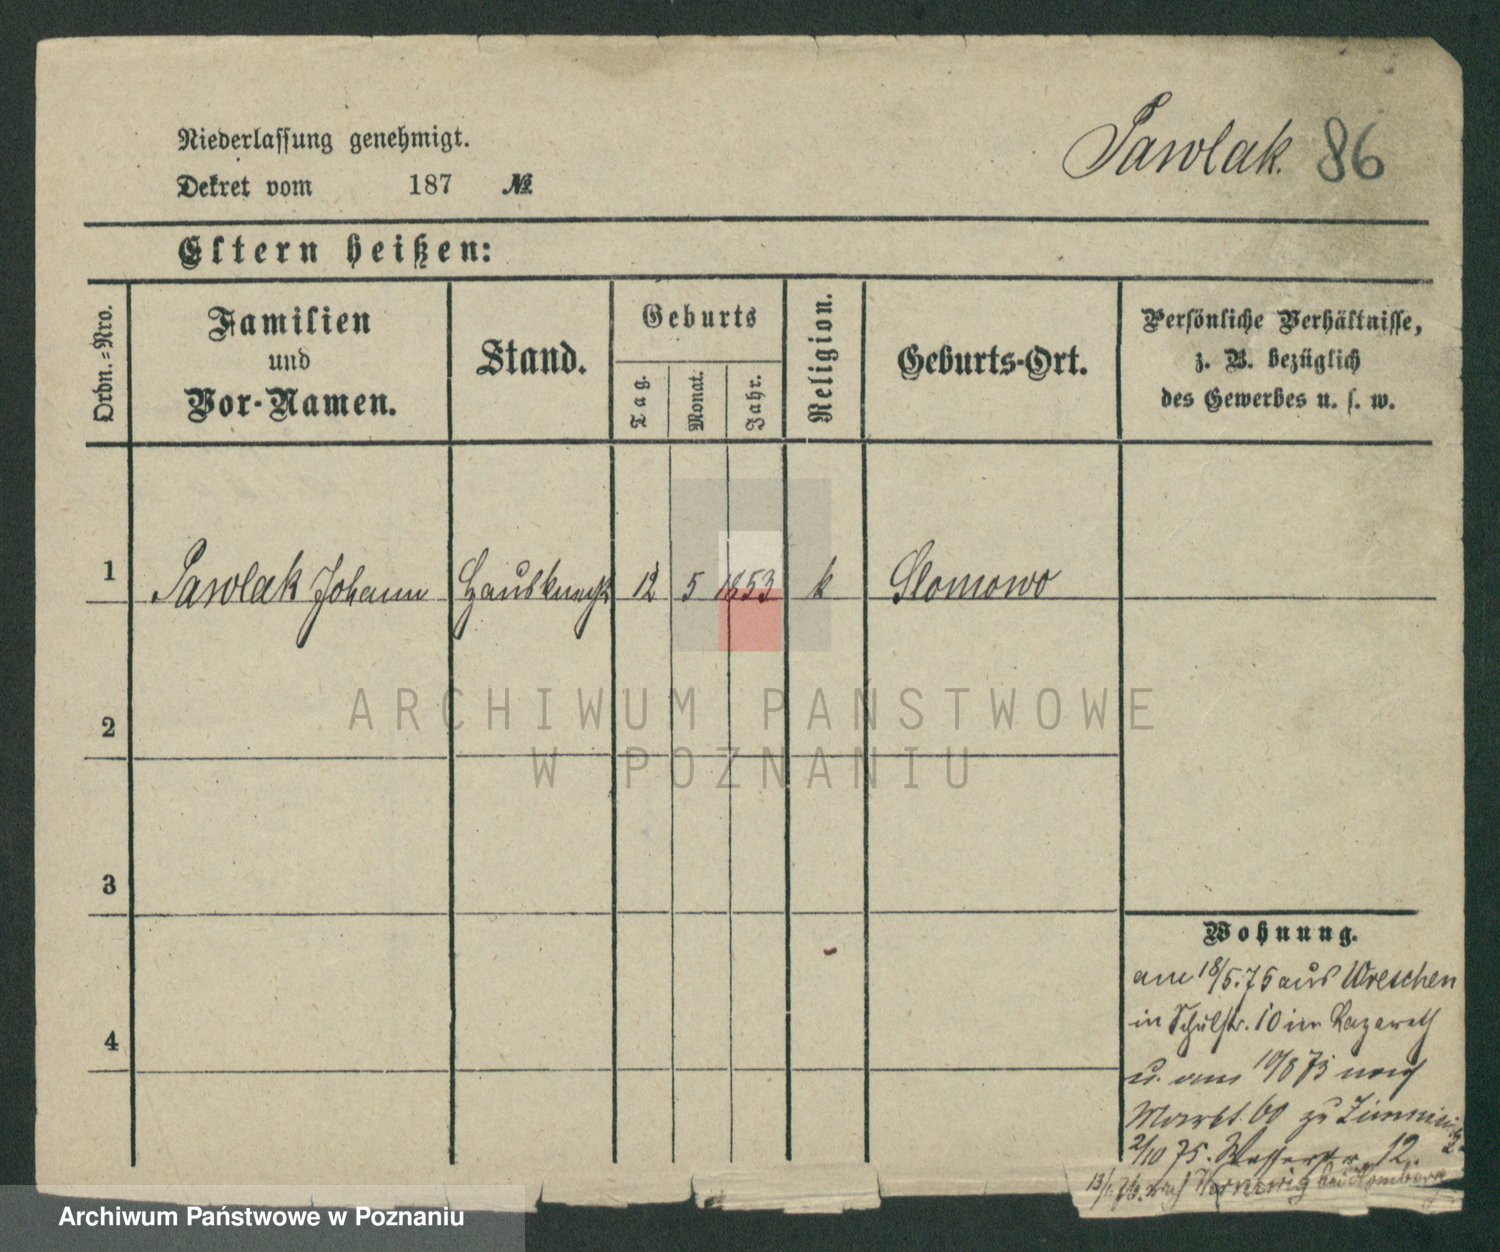 Niederlassung genehmigt.
Pawlak. 86
Dekret vom 187 №
Eltern heißen:
Ordn.-Nro.
Familien
und
Vor-Namen.
Stand.
Geburts
Tag.
Monat.
Jahr.
Religion.
Geburts-Ort.
Persönliche Verhältnisse,
z. B. bezüglich
des Gewerbes u. s. w.
1 Pawlak Johann Hausknecht 12 5 1853 k Slomowo
2
3
4
Wohnung.
am 18/5.75 aus Wreschen
in Schulstr. 10 im Lazareth
u. am 10/8 75 nach
Markt 60 zu
2/10 75. Wasserstr. 12.
13/1.76. nach bei
ARCHIWUM PAŃSTWOWE
W POZNANIU
Archiwum Państwowe w Poznaniu